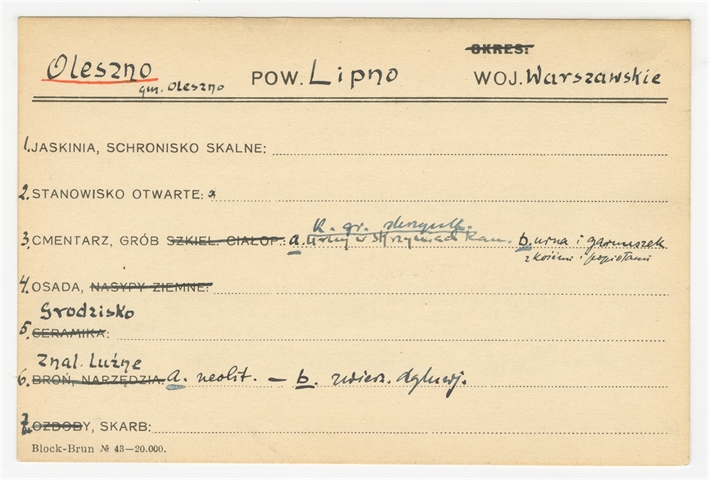 OKRES:
Oleszno POW. Lipno WOJ. Warszawskie
gm. Oleszno
1. JASKINIA, SCHRONISKO SKALNE:
2. STANOWISKO OTWARTE:
K. gr. skrzynk.
3. CMENTARZ, GRÓB SZKIEL. CIAŁOP.: a. urny w skrzyniach kam. b. urna i garnuszek
z kośćmi i popiołami
4. OSADA, NASYPY ZIEMNE:
Grodzisko
5. CERAMIKA:
Znal. Luźne
6. BROŃ, NARZĘDZIA. a. neolit. — b. zwierz. dyluwj.
7. OZDOBY, SKARB:
Block-Brun № 43—20.000.